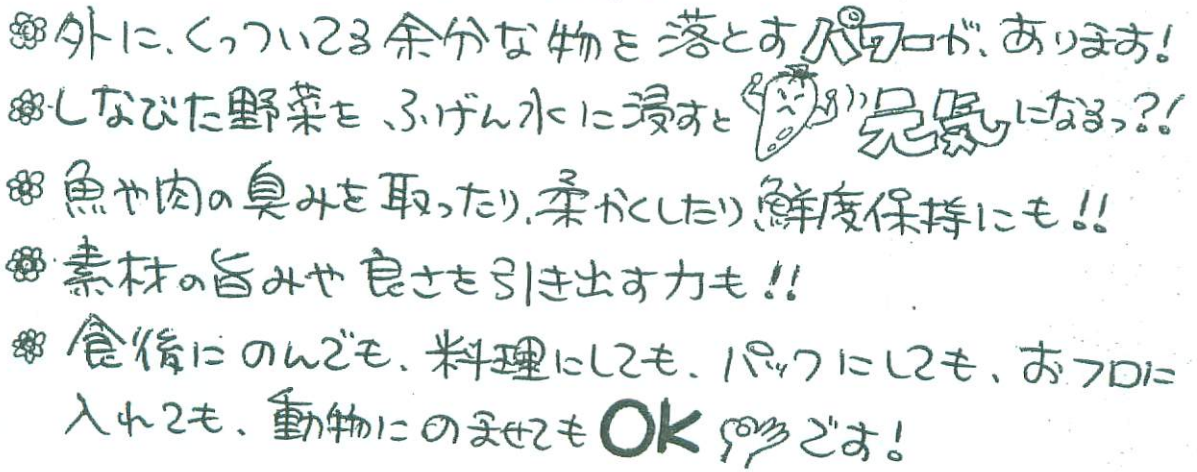 外に、くっついてる余分な物を落とすパワーが、あります!
しなびた野菜を、ふげん水に浸すと元気になるっ?!
魚や肉の臭みを取ったり、柔かくしたり鮮度保持にも!!
素材の旨みや良さを引き出す力も!!
食後にのんでも、料理にしても、パックにしても、おフロに
入れても、動物にのませてもOKです!